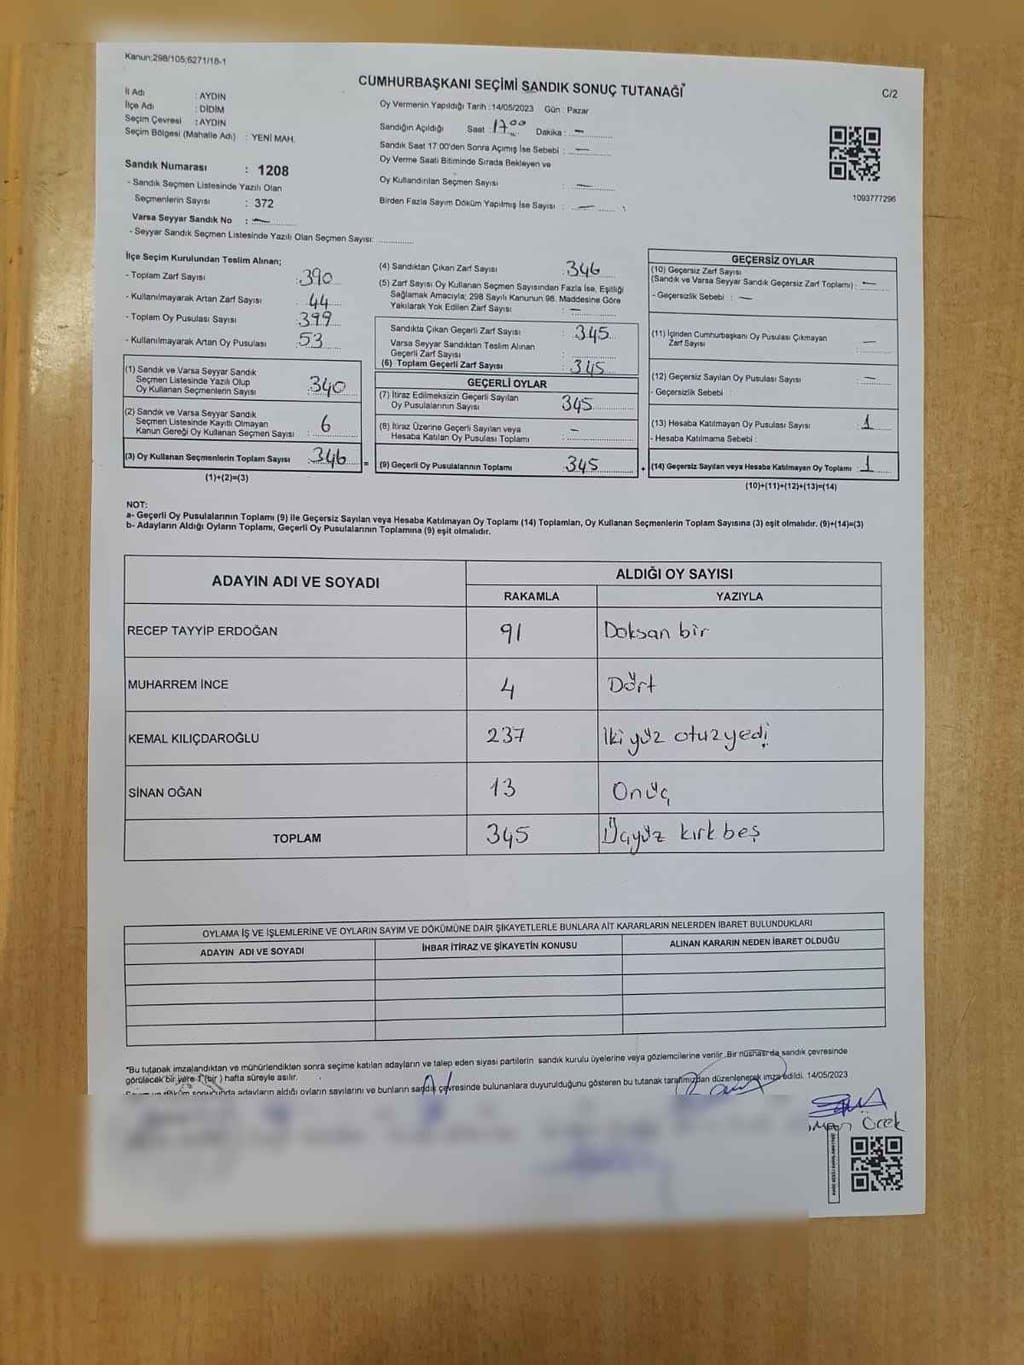 Kanun:298/105;6271/18-1
CUMHURBAŞKANI SEÇİMİ SANDIK SONUÇ TUTANAĞI*
C/2
İl Adı : AYDIN
İlçe Adı : DİDİM
Seçim Çevresi : AYDIN
Seçim Bölgesi (Mahalle Adı) : YENİ MAH.
Sandık Numarası : 1208
- Sandık Seçmen Listesinde Yazılı Olan
Seçmenlerin Sayısı : 372
Varsa Seyyar Sandık No : —
- Seyyar Sandık Seçmen Listesinde Yazılı Olan Seçmen Sayısı: ............
Oy Vermenin Yapıldığı Tarih :14/05/2023 Gün : Pazar
Sandığın Açıldığı Saat : 17:00 Dakika : —
Sandık Saat 17:00'den Sonra Açımış İse Sebebi : —
Oy Verme Saati Bitiminde Sırada Bekleyen ve
Oy Kullandırılan Seçmen Sayısı : —
Birden Fazla Sayım Döküm Yapılmış İse Sayısı : —
1093777296
İlçe Seçim Kurulundan Teslim Alınan;
- Toplam Zarf Sayısı : 390
- Kullanılmayarak Artan Zarf Sayısı : 44
- Toplam Oy Pusulası Sayısı : 399
- Kullanılmayarak Artan Oy Pusulası : 53
(1) Sandık ve Varsa Seyyar Sandık
Seçmen Listesinde Yazılı Olup
Oy Kullanan Seçmenlerin Sayısı : 340
(2) Sandık ve Varsa Seyyar Sandık
Seçmen Listesinde Kayıtlı Olmayan
Kanun Gereği Oy Kullanan Seçmen Sayısı : 6
(3) Oy Kullanan Seçmenlerin Toplam Sayısı : 346 =
(1)+(2)=(3)
(4) Sandıktan Çıkan Zarf Sayısı : 346
(5) Zarf Sayısı Oy Kullanan Seçmen Sayısından Fazla İse, Eşitliği
Sağlamak Amacıyla; 298 Sayılı Kanunun 98. Maddesine Göre
Yakılarak Yok Edilen Zarf Sayısı : —
Sandıkta Çıkan Geçerli Zarf Sayısı : 345
Varsa Seyyar Sandıktan Teslim Alınan
Geçerli Zarf Sayısı :
(6) Toplam Geçerli Zarf Sayısı : 345
GEÇERLİ OYLAR
(7) İtiraz Edilmeksizin Geçerli Sayılan
Oy Pusulalarının Sayısı : 345
(8) İtiraz Üzerine Geçerli Sayılan veya
Hesaba Katılan Oy Pusulası Toplamı : —
(9) Geçerli Oy Pusulalarının Toplamı : 345 +
GEÇERSİZ OYLAR
(10) Geçersiz Zarf Sayısı
(Sandık ve Varsa Seyyar Sandık Geçersiz Zarf Toplamı) : —
- Geçersizlik Sebebi : —
(11) İçinden Cumhurbaşkanı Oy Pusulası Çıkmayan
Zarf Sayısı : —
(12) Geçersiz Sayılan Oy Pusulası Sayısı : —
- Geçersizlik Sebebi :
(13) Hesaba Katılmayan Oy Pusulası Sayısı : 1
- Hesaba Katılmama Sebebi :
(14) Geçersiz Sayılan veya Hesaba Katılmayan Oy Toplamı : 1
(10)+(11)+(12)+(13)=(14)
NOT:
a- Geçerli Oy Pusulalarının Toplamı (9) ile Geçersiz Sayılan veya Hesaba Katılmayan Oy Toplamı (14) Toplamları, Oy Kullanan Seçmenlerin Toplam Sayısına (3) eşit olmalıdır. (9)+(14)=(3)
b- Adayların Aldığı Oyların Toplamı, Geçerli Oy Pusulalarının Toplamına (9) eşit olmalıdır.
ADAYIN ADI VE SOYADI ALDIĞI OY SAYISI
RAKAMLA YAZIYLA
RECEP TAYYİP ERDOĞAN 91 Doksan bir
MUHARREM İNCE 4 Dört
KEMAL KILIÇDAROĞLU 237 İki yüz otuzyedi
SİNAN OĞAN 13 Onüç
TOPLAM 345 Üçyüz kırk beş
OYLAMA İŞ VE İŞLEMLERİNE VE OYLARIN SAYIM VE DÖKÜMÜNE DAİR ŞİKAYETLERLE BUNLARA AİT KARARLARIN NELERDEN İBARET BULUNDUKLARI
ADAYIN ADI VE SOYADI İHBAR İTİRAZ VE ŞİKAYETİN KONUSU ALINAN KARARIN NEDEN İBARET OLDUĞU
*Bu tutanak imzalandıktan ve mühürlendikten sonra seçime katılan adayların ve talep eden siyasi partilerin sandık kurulu üyelerine veya gözlemcilerine verilir. Bir nüshası da sandık çevresinde
görülecek bir yere 1 (bir) hafta süreyle asılır.
adayların aldığı oyların sayılarını ve bunların sandık çevresinde bulunanlara duyurulduğunu gösteren bu tutanak tarafımızdan düzenlenerek imza edildi. 14/05/2023
Örek